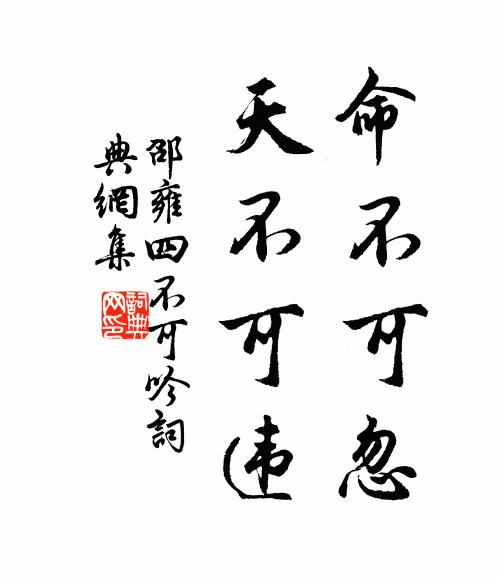 命不可忽
天不可违
邵雍四不可吟詞
典網集
詞典
网印